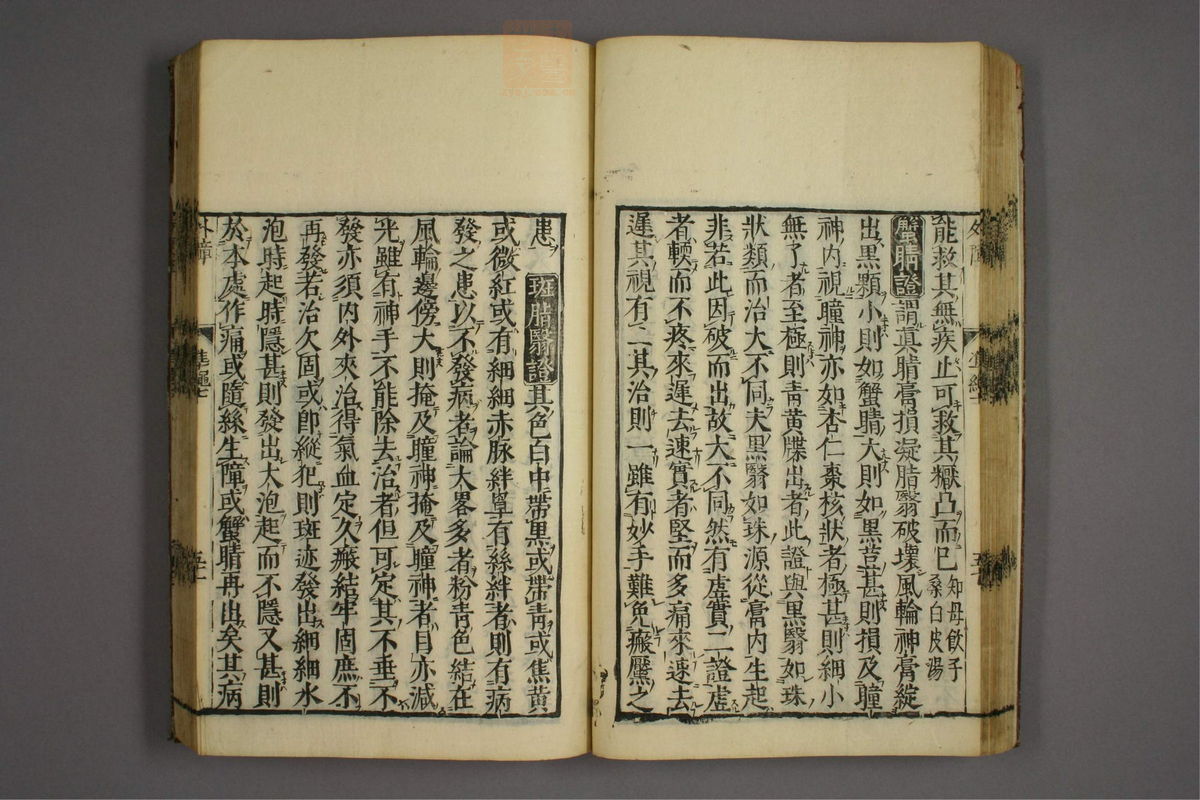 能救其無疾止可救其癥凸而巳 知母飲子 桑白皮湯
蟹睛證謂眞睛膏損凝脂翳破壞風輪神膏綻
出黑顆小則如蟹睛大則如黑苣甚則損及瞳
神内視瞳神亦如杏仁棗核狀者極甚則細小
無了者至極則青黄牒出者此證與黑翳如珠
狀類而治大不同夫黑翳如珠源從膏内生起
非若此因破而出故大不同然有虚實二證虚
者輭而不疼來遲去速實者堅而多痛來速去
遲其視有二其治則一雖有妙手難免瘢靨之
患 斑脂翳證其色白中帶黑或帶青或焦黄
或微紅或有細細赤脉絆罩有絲絆者則有病
發之患以不發病者論大畧多者粉青色結在
風輪邊傍大則掩及瞳神掩及瞳神者目亦減
光雖有神手不能除去治者但可定其不垂不
發亦須内外夾治得氣血定久瘢結牢固庶不
再發若治欠固或卽縱犯則斑迹發出細細水
泡時起時隱甚則發出大泡起而不隱又甚則
於本處作痛或隨絲生障或蟹睛再出矣其病
外障